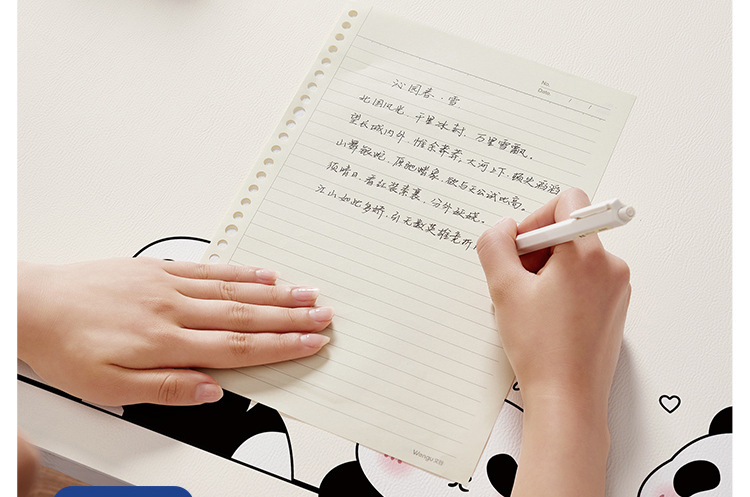 No.
Date. / /
沁园春·雪
北国风光,千里冰封,万里雪飘。
望长城内外,惟余莽莽,大河上下,顿失滔滔
山舞银蛇,原驰蜡象,欲与天公试比高。
须晴日,看红装素裹,分外妖娆。
江山如此多娇,引无数英雄竞折
Wengu